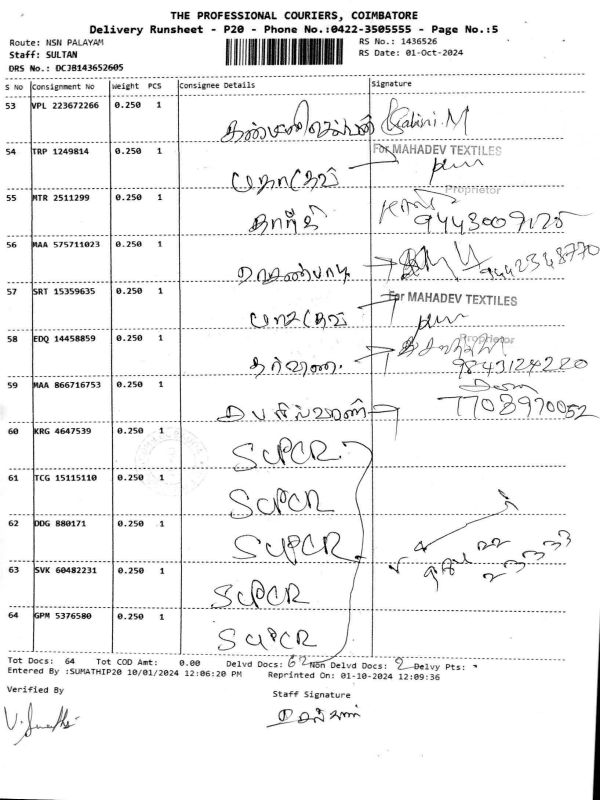 THE PROFESSIONAL COURIERS, COIMBATORE
Delivery Runsheet - P20 - Phone No.:0422-3505555 - Page No.:5
Route: NSN PALAYAM
RS No.: 1436526
Staff: SULTAN
RS Date: 01-Oct-2024
DRS No.: DCJB143652605
S No Consignment No Weight PCS Consignee Details Signature
53 VPL 223672266 0.250 1
54 TRP 1249814 0.250 1 For MAHADEV TEXTILES
Proprietor
55 MTR 2511299 0.250 1
9443009125
56 MAA 575711023 0.250 1 9442348770
57 SRT 15359635 0.250 1 For MAHADEV TEXTILES
Proprietor
58 EDQ 14458859 0.250 1
9843124220
59 MAA 866716753 0.250 1 7708970052
60 KRG 4647539 0.250 1 SUPER
61 TCG 15115110 0.250 1 SUPER
62 DDG 880171 0.250 1 SUPER
63 SVK 60482231 0.250 1 SUPER
64 GPM 5376580 0.250 1 SUPER
Tot Docs: 64 Tot COD Amt: 0.00 Delvd Docs: 62 Non Delvd Docs: 2 Delvy Pts:
Entered By :SUMATHIP20 10/01/2024 12:06:20 PM Reprinted On: 01-10-2024 12:09:36
Verified By
Staff Signature